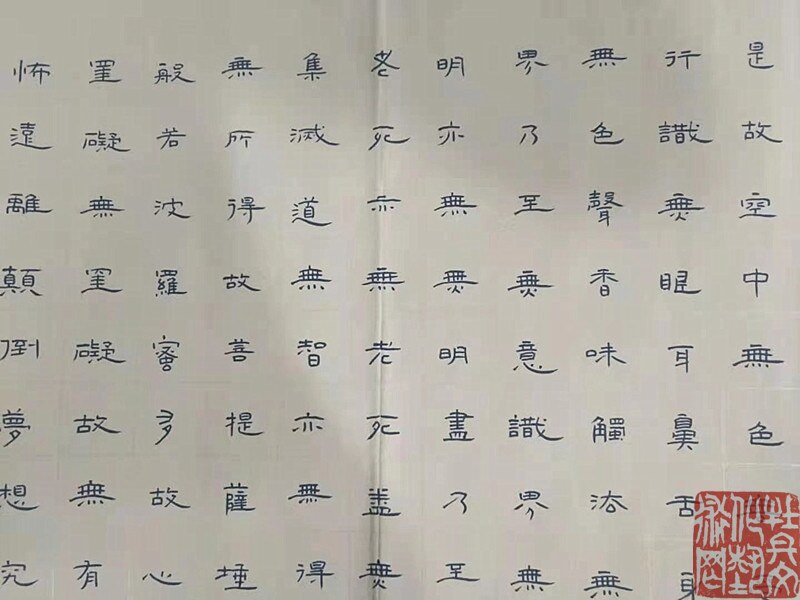 是故空中無色無
行識無眼耳鼻舌身
無色聲香味觸法無
界乃至無意識界無
明亦無無明盡乃至
老死亦無老死盡無
集滅道無智亦無得
無所得故菩提薩埵
般若波羅蜜多故心
罣礙無罣礙故無有
怖遠離顛倒夢想究